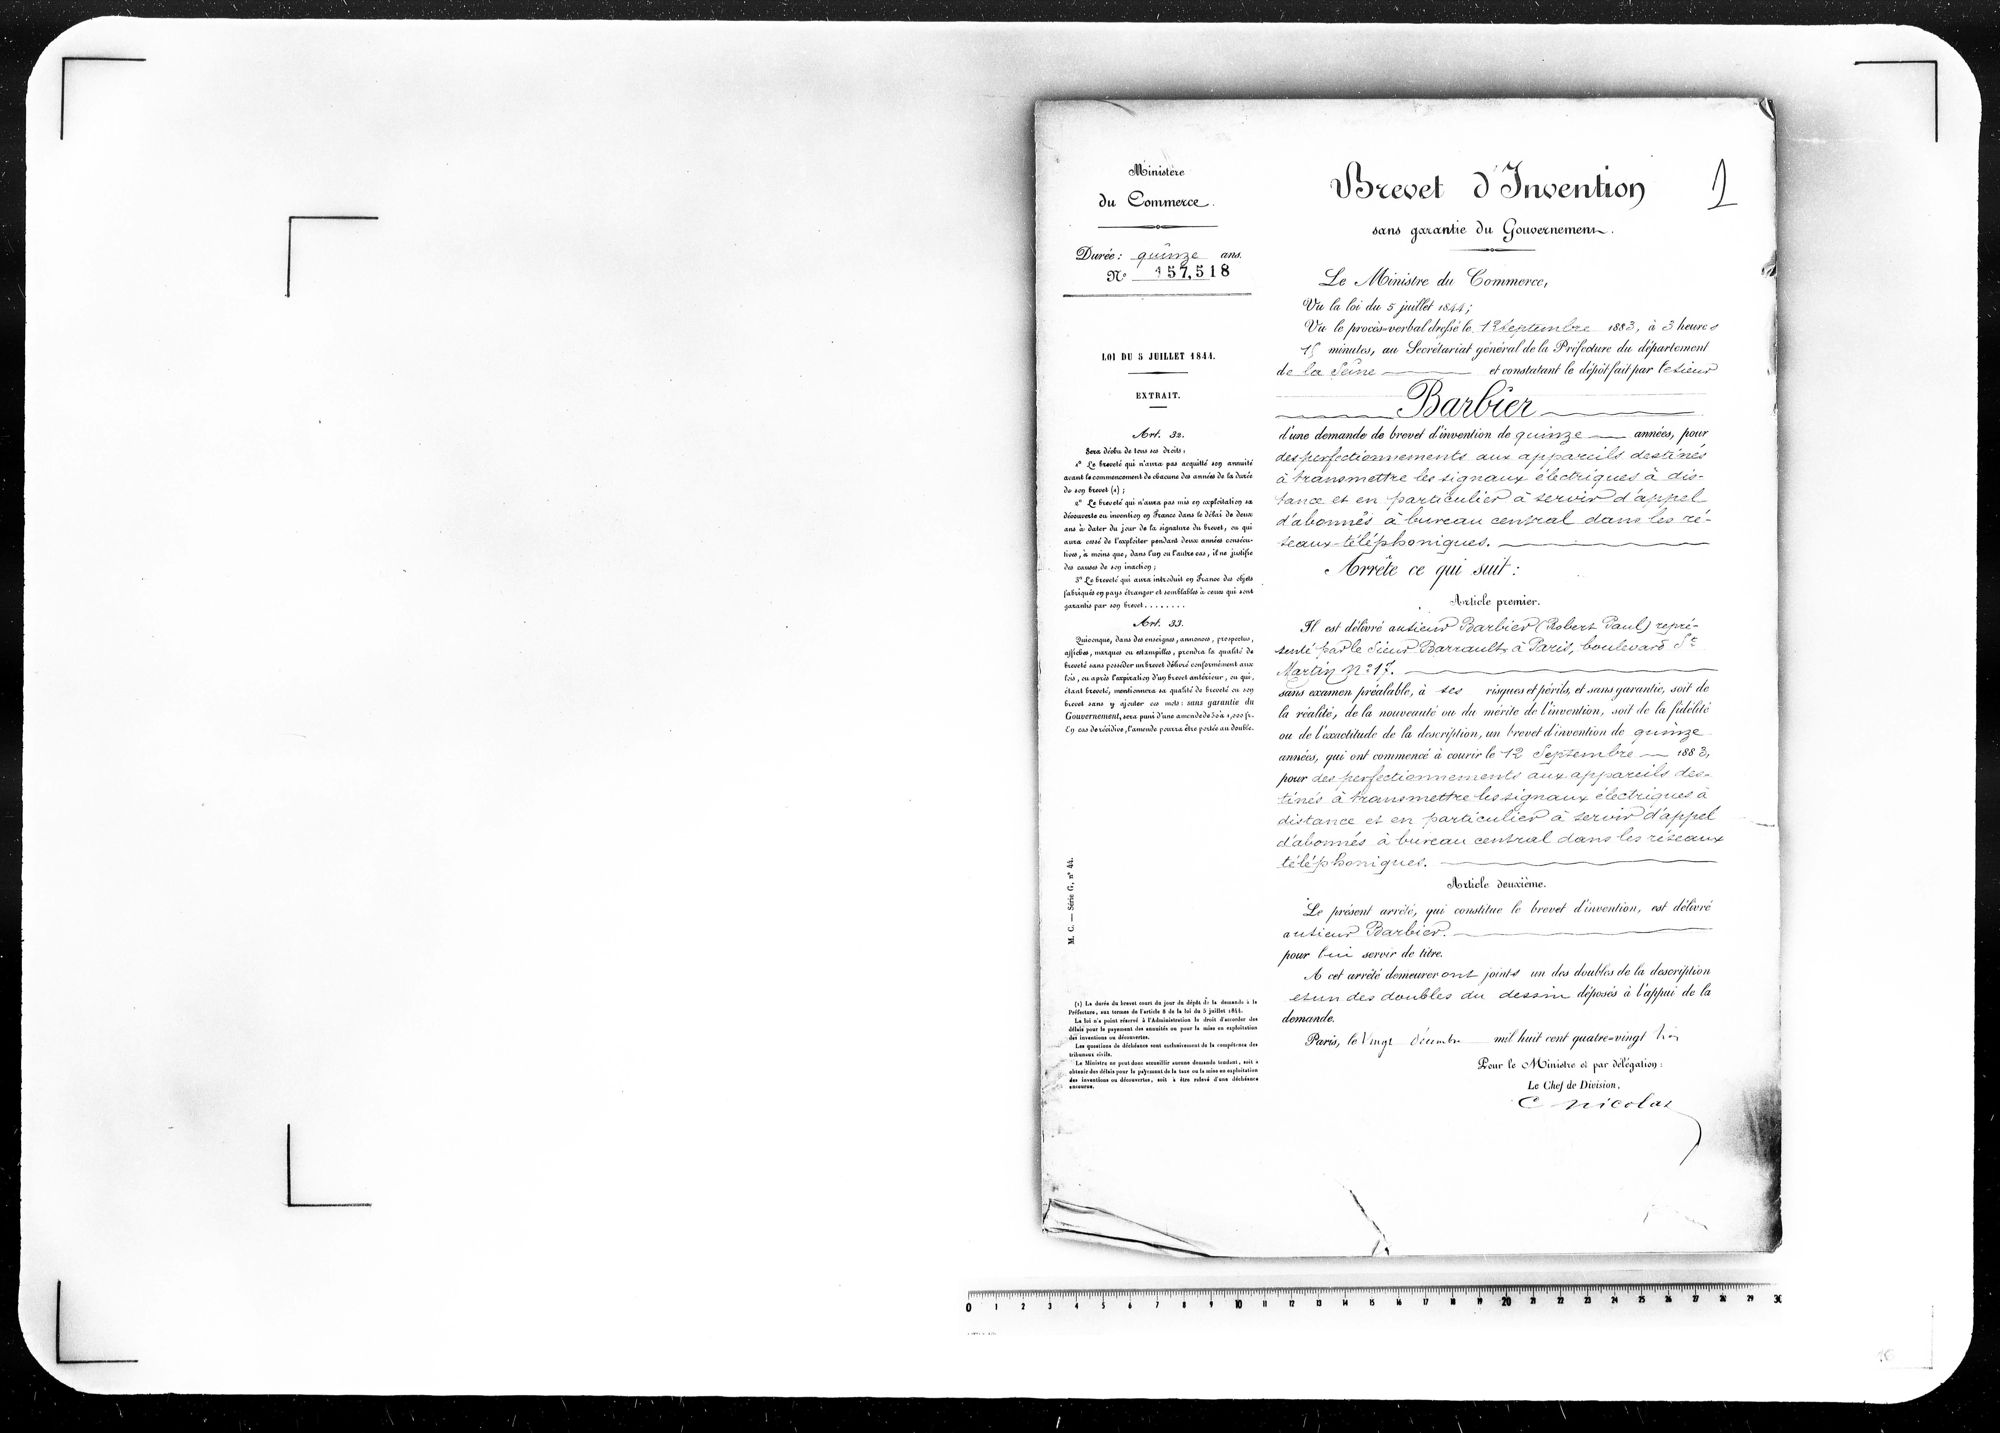 Ministère
du Commerce.
Durée: quinze ans.
N° 157,518
LOI DU 5 JUILLET 1844.
EXTRAIT.
Art. 32.
Sera déchu de tous ses droits:
1° Le breveté qui n'aura pas acquitté son annuité
avant le commencement de chacune des années de la durée
de son brevet (1);
2° Le breveté qui n'aura pas mis en exploitation sa
découverte ou invention en France dans le délai de deux
ans à dater du jour de la signature du brevet, ou qui
aura cessé de l'exploiter pendant deux années consécu-
tives, à moins que, dans l'un ou l'autre cas, il ne justifie
des causes de son inaction;
3° Le breveté qui aura introduit en France des objets
fabriqués en pays étranger et semblables à ceux qui sont
garantis par son brevet........
Art. 33.
Quiconque, dans des enseignes, annonces, prospectus,
affiches, marques ou estampilles, prendra la qualité de
breveté sans posséder un brevet délivré conformément aux
lois, ou après l'expiration d'un brevet antérieur, ou qui,
étant breveté, mentionnera sa qualité de breveté ou son
brevet sans y ajouter ces mots: sans garantie du
Gouvernement, sera puni d'une amende de 50 à 1,000 fr.
En cas de récidive, l'amende pourra être portée au double.
M. C. — Série G, n° 44.
(1) La durée du brevet court du jour du dépôt de la demande à la
Préfecture, aux termes de l'article 8 de la loi du 5 juillet 1844.
La loi n'a point réservé à l'Administration le droit d'accorder des
délais pour le payement des annuités ou pour la mise en exploitation
des inventions ou découvertes.
Les questions de déchéance sont exclusivement de la compétence des
tribunaux civils.
Le Ministre ne peut donc accueillir aucune demande tendant, soit à
obtenir des délais pour le payement de la taxe ou la mise en exploitation
des inventions ou découvertes, soit à être relevé d'une déchéance
encourue.
Brevet d'Invention
sans garantie du Gouvernement.
1
Le Ministre du Commerce,
Vu la loi du 5 juillet 1844;
Vu le procès-verbal dressé le 12 Septembre 1883, à 3 heures
15 minutes, au Secrétariat général de la Préfecture du département
de la Seine et constatant le dépôt fait par le sieur
Barbier
d'une demande de brevet d'invention de quinze années, pour
des perfectionnements aux appareils destinés
à transmettre les signaux électriques à dis-
tance et en particulier à servir d'appel
d'abonnés à bureau central dans les ré-
seaux téléphoniques.
Arrête ce qui suit:
Article premier.
Il est délivré au sieur Barbier (Robert Paul) repré-
senté par le sieur Barrault, à Paris, boulevard St
Martin N° 17.
sans examen préalable, à ses risques et périls, et sans garantie, soit de
la réalité, de la nouveauté ou du mérite de l'invention, soit de la fidélité
ou de l'exactitude de la description, un brevet d'invention de quinze
années, qui ont commencé à courir le 12 Septembre 1883,
pour des perfectionnements aux appareils des-
tinés à transmettre les signaux électriques à
distance et en particulier à servir d'appel
d'abonnés à bureau central dans les réseaux
téléphoniques.
Article deuxième.
Le présent arrêté, qui constitue le brevet d'invention, est délivré
au sieur Barbier.
pour lui servir de titre.
A cet arrêté demeureront joints un des doubles de la description
et un des doubles du dessin déposés à l'appui de la
demande.
Paris, le Vingt décembre mil huit cent quatre-vingt trois
Pour le Ministre et par délégation:
Le Chef de Division,
C Nicolas
0 1 2 3 4 5 6 7 8 9 10 11 12 13 14 15 16 17 18 19 20 21 22 23 24 25 26 27 28 29 30